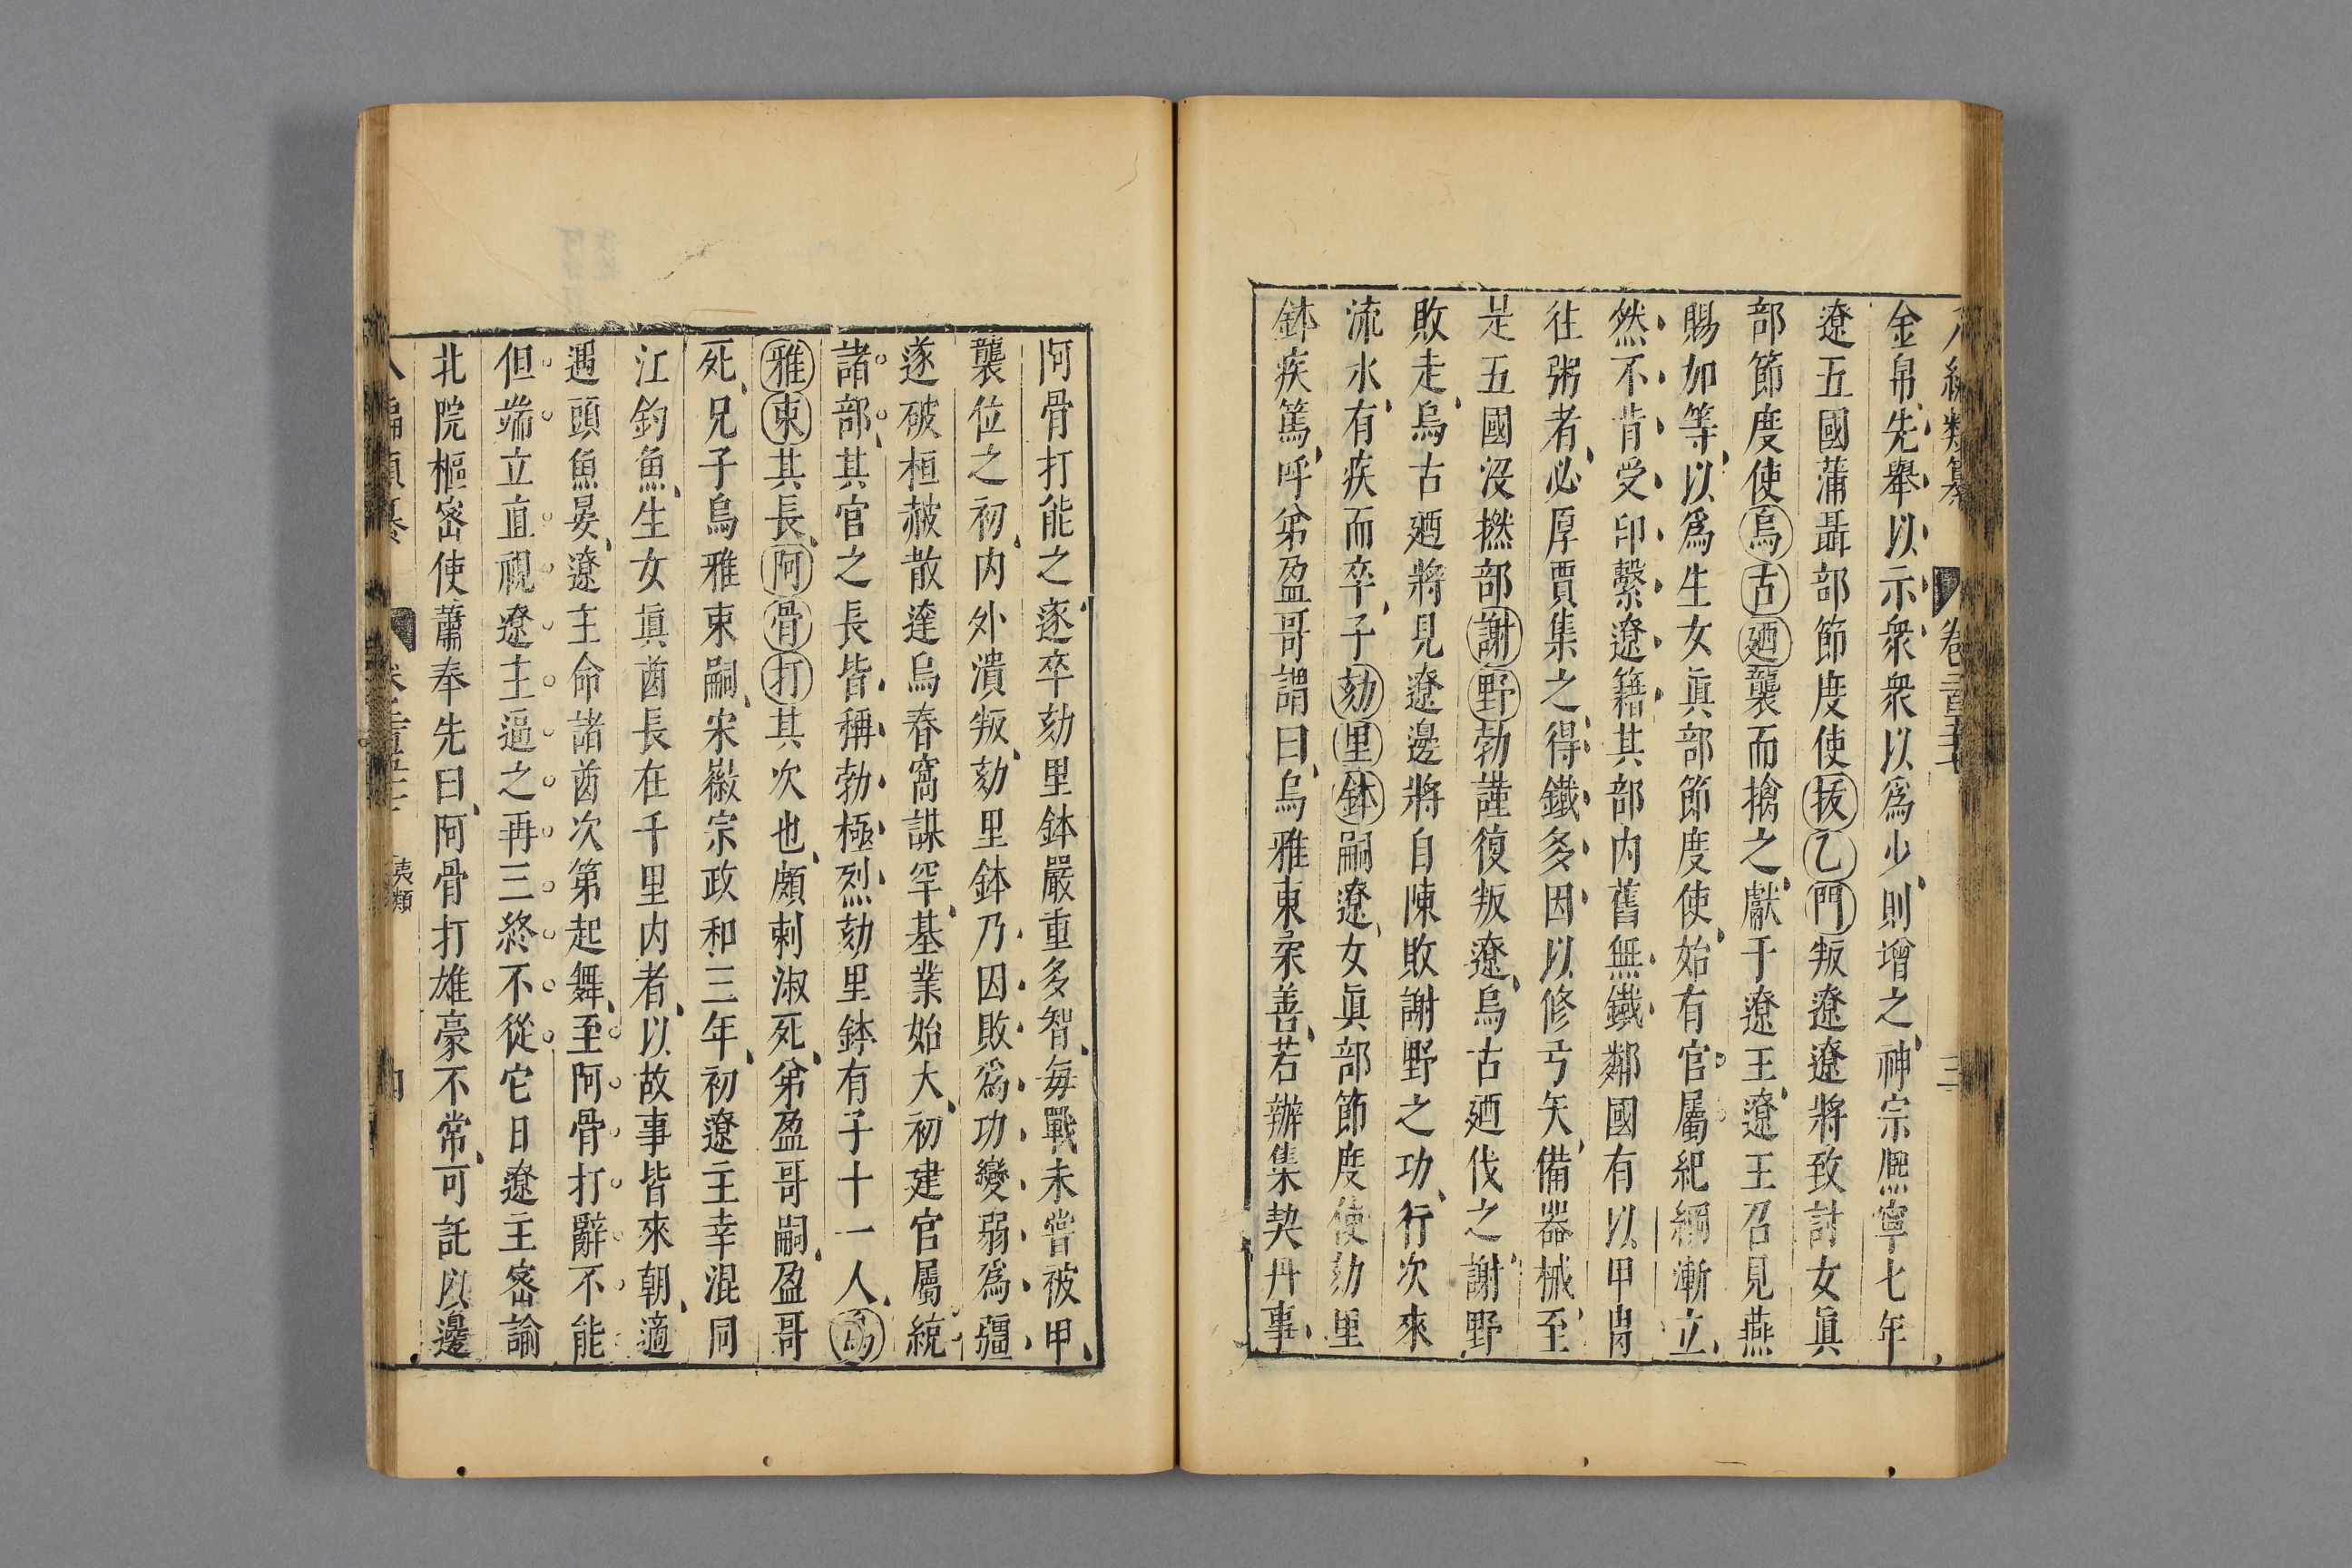 金帛先舉以示衆衆以爲少則增之神宗熈寧七年
遼五國蒲聶部節度使拔乙門叛遼遼將致討女眞
部節度使烏古廼襲而擒之獻于遼王遼王召見燕
賜加等以爲生女眞部節度使始有官屬紀綱漸立
然不肯受印繫遼籍其部内舊無鐵鄰國有以甲冑
往粥者必厚賈集之得鐵多因以修弓矢備器械至
是五國没撚部謝野勃謹復叛遼烏古廼伐之謝野
敗走烏古廼將見遼邊將自陳敗謝野之功行次來
流水有疾而卒子劾里鉢嗣遼女眞部節度使劾里
鉢疾篤呼弟盈哥謂曰烏雅束柔善若辦集契丹事
阿骨打能之遂卒劾里鉢嚴重多智毎戰未嘗被甲
襲位之初内外潰叛劾里鉢乃因敗爲功變弱爲彊
遂破桓赧散達烏春窩謀罕基業始大初建官屬統
諸部其官之長皆稱勃極烈劾里鉢有子十一人烏
雅束其長阿骨打其次也頗剌淑死弟盈哥嗣盈哥
死兄子烏雅束嗣宋徽宗政和三年初遼主幸混同
江釣魚生女眞酋長在千里内者以故事皆來朝適
遇頭魚宴遼主命諸酋次第起舞至阿骨打辭不能
但端立直視遼主逼之再三終不從它日遼主密諭
北院樞密使蕭奉先曰阿骨打雄豪不常可託以邊
夷類